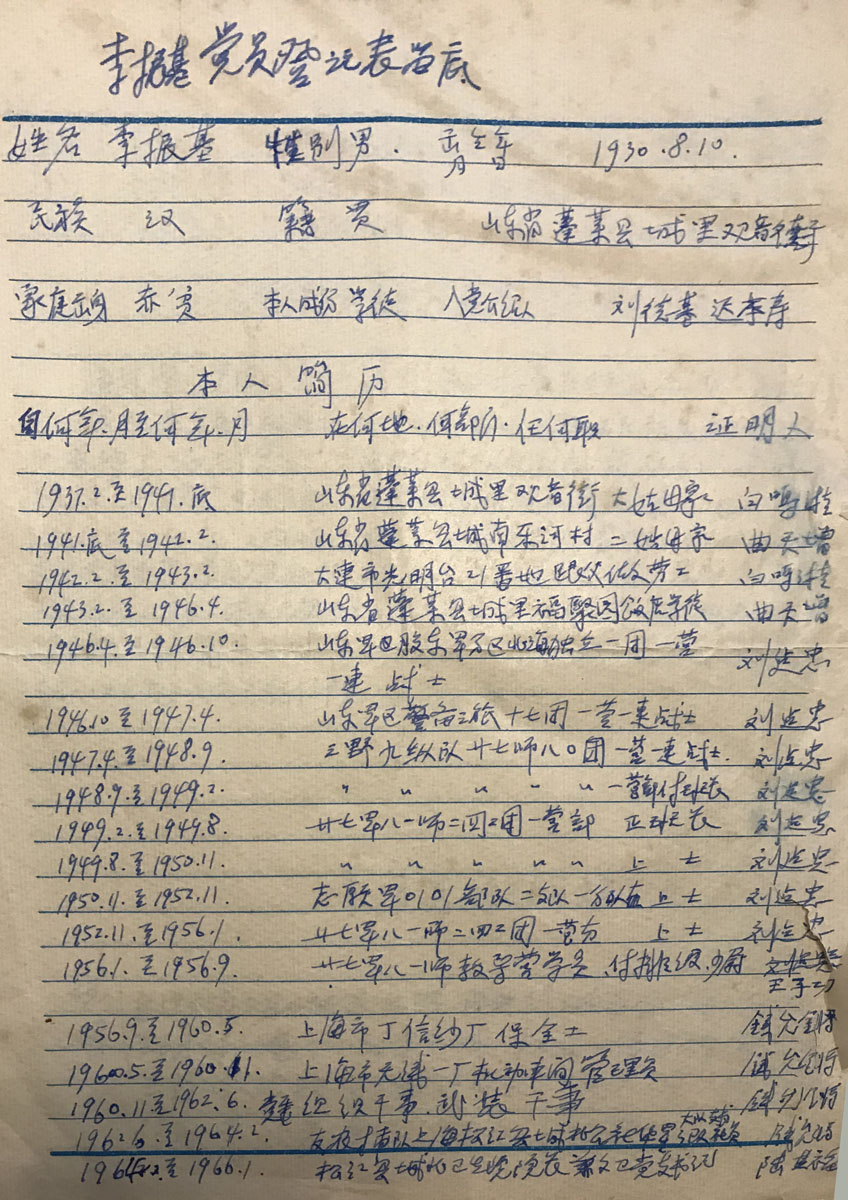 李振基党员登记表留底
姓名 李振基 性别 男. 出生年月日 1930.8.10.
民族 汉 籍贯 山东省蓬莱县城里观音
家庭出身 赤贫 本人成份 学徒 入党介绍人 刘德基 迟李寿
本人简历
自何年.月至何年.月 在何地.何部门.任何职 证明人
1937.2.至1941.底 山东省蓬莱县城里观音街大姑母家
1941.底至1942.2. 山东省蓬莱县城南东河村二姑母家 曲天增
1942.2至1943.2. 大连市光明台21番地跟父做劳工
1943.2.至1946.4. 山东省蓬莱县城里福聚园饭店学徒 曲天增
1946.4.至1946.10. 山东军区胶东军分区北海独立一团一营 刘延忠
一连战士
1946.10至1947.4. 山东军区警备三旅十七团一营一连战士 刘延忠
1947.4.至1948.9. 三野九纵队廿七师八0团一营一连战士. 刘延忠
1948.9.至1949.2. 〃 〃 〃 〃 〃 一营部付班长 刘延忠
1949.2.至1949.8. 廿七军八一师二四二团一营部 正班长 刘延忠
1949.8.至1950.11. 〃 〃 〃 〃 〃 上士 刘延忠
1950.11.至1952.11. 志愿军0101部队二支队一分队 上士 刘延忠
1952.11.至1956.1. 廿七军八一师二四二团一营部 上士 刘延忠
1956.1.至1956.9. 廿七军八一师教导营学员、付排级.少尉
王子功
1956.9.至1960.5. 上海市丁信纱厂保全士
1960.5.至1960.11. 上海市无线一厂机动车间管理员
1960.11至1962.6. 党委组织干事.武装干事
1962.6.至1964.2. 支农
1964.2至1966.1. 松江县城北卫生院院长兼文卫党支书记